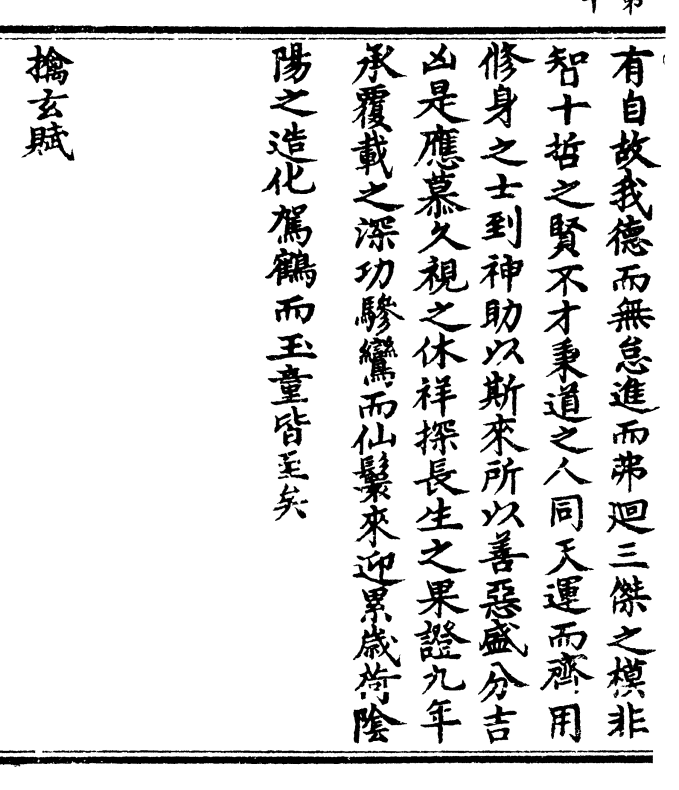 有自故我德而無怠進而弗迴三傑之模非
智十哲之賢不才秉道之人同天運而齊用
修身之士到神助以斯來所以善惡盛分吉
凶是應慕久視之休祥探長生之果證九年
承覆載之深功驂鸞而仙鬟來迎累歲荷陰
陽之造化駕鶴而玉童皆至矣
擒玄賦